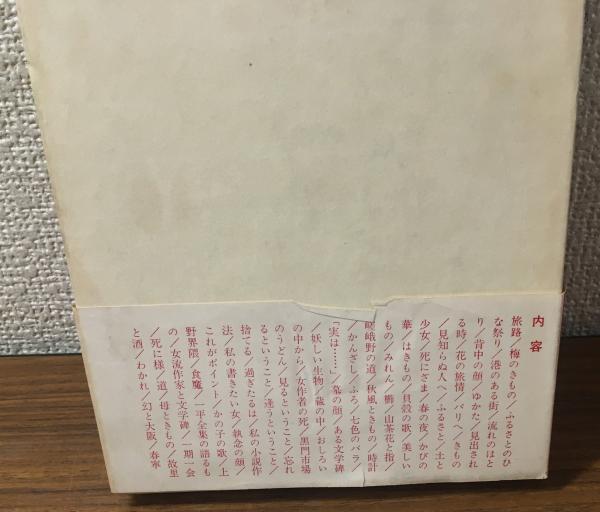 内容
旅路／梅のきもの／ふるさとのひ
な祭り／港のある街／流れのほと
り／背中の顔／ゆかた／見出され
る時／花の旅情／パリへ／きもの
／見知らぬ人へ／ふるさと／土と
少女／死にざま／春の夜／かびの
華／はきもの／貝殻の歌／美しい
もの／みれん／櫛／山茶花と指／
嵯峨野の道／秋風ときもの／時計
／かんざし／ふろ／七色のバラ／
「実は……」／墓の顔／ある文学碑
／妖しい生物／蔵の中／おしろい
の中から／女作者の死／黒門市場
のうどん／見るということ／忘れ
るということ／逢うということ／
捨てる／過ぎたるは／私の小説作
法／私の書きたい女／執念の顔／
これがポイント／かの子の歌／上
野界隈／食魔／一平全集の語るも
の／女流作家と文学碑／一期一会
／死に様／道／母ときもの／故里
と酒／わかれ／幻と大阪／春寧